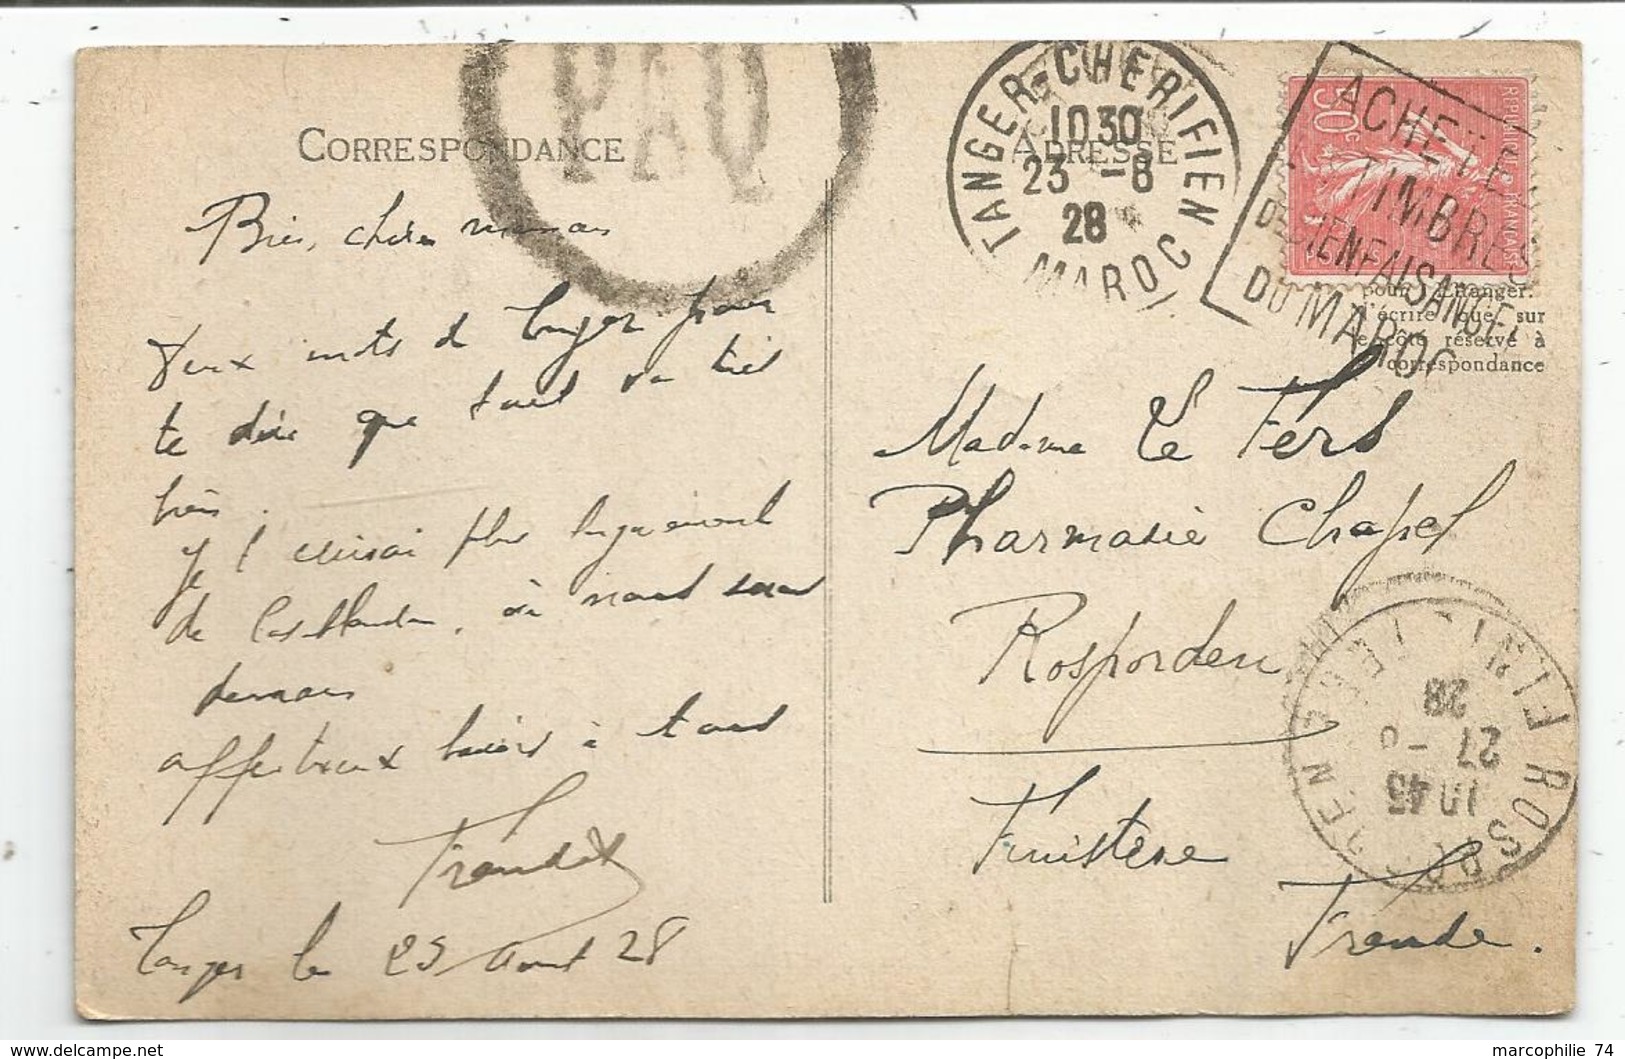 CORRESPONDANCE
PAQ
Bien chère maman
Deux mots de Tanger pour
te dire que tout va très
bien.
Je t'écrirai plus longuement
de Casablanca, où nous serons
demain
affectueux baisers à tous
Tanger le 23 Aout 28
TANGER-CHERIFIEN
10 30
23 -8
28
MAROC
ADRESSE
50c
REPUBLIQUE FRANÇAISE
ACHETEZ
TIMBRES
DE BIENFAISANCE
DU MAROC
pour l'Etranger.
n'écrire que sur
le côté réservé à
correspondance
Madame Le Fers
Pharmacie Chapel
Rosporden
Finistère
France.
ROSPORDEN FINISTERE
10 45
27 -8
28
marcophilie 74